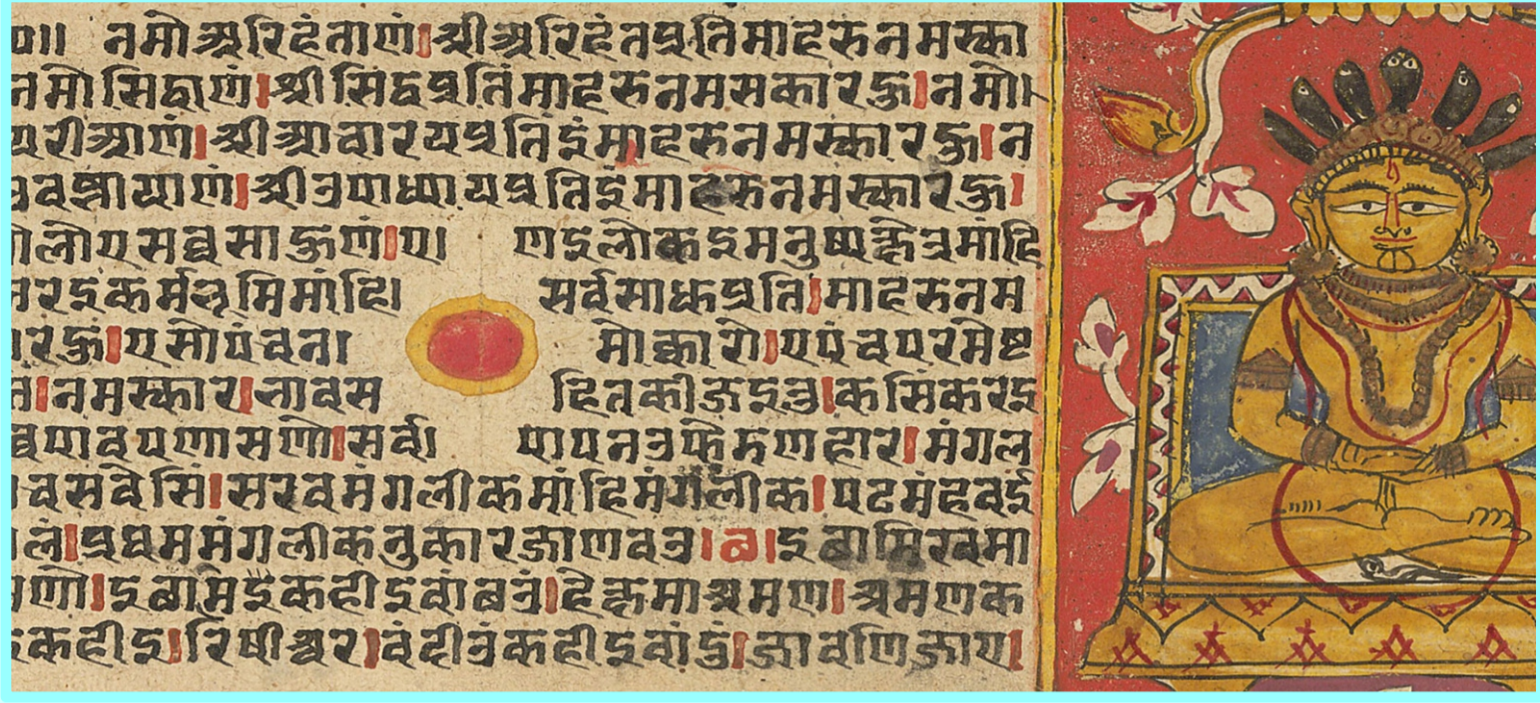 ॥ नमोअरिहंताणं।श्रीअरिहंतप्रतिमाहरुनमस्का
नमोसिद्धाणं।श्रीसिद्धप्रतिंमाहरुनमसकारहु।नमो।
यरीआणं।श्रीआचारयप्रतिइंमाहरुनमस्कारहु।न
वझायाणं।श्रीउपाध्यायप्रतिइंमाहरुनमस्कारहु।
लोएसव्वसाहुणं।ए। णइलोकइमनुष्यक्षेत्रमांहि
रइकर्मभूमिमांहि। सर्वसाधुप्रति।माहरुनम
रहुं।एसोपंचन। मोक्कारो।एपंचपरमेष्ट
।नमस्कार।भावस हितकीजइतु।कसिंकरइ
पावपणासणो।सर्व। पापनउफेडणहार।मंगल
चसवेसिं।सरवमंगलीकमांहिमंगलीक।पढमंहवई
लं।प्रथममंगलीकनुकारजाणवउ।छ।इछामिखमा
णो।इछामिइकहीइवांछउं।हेक्षमाश्रमण।श्रमणक
कहीइ।रिषीश्वर।वंदीउंकहीइवांदुं।जावणिजाए।